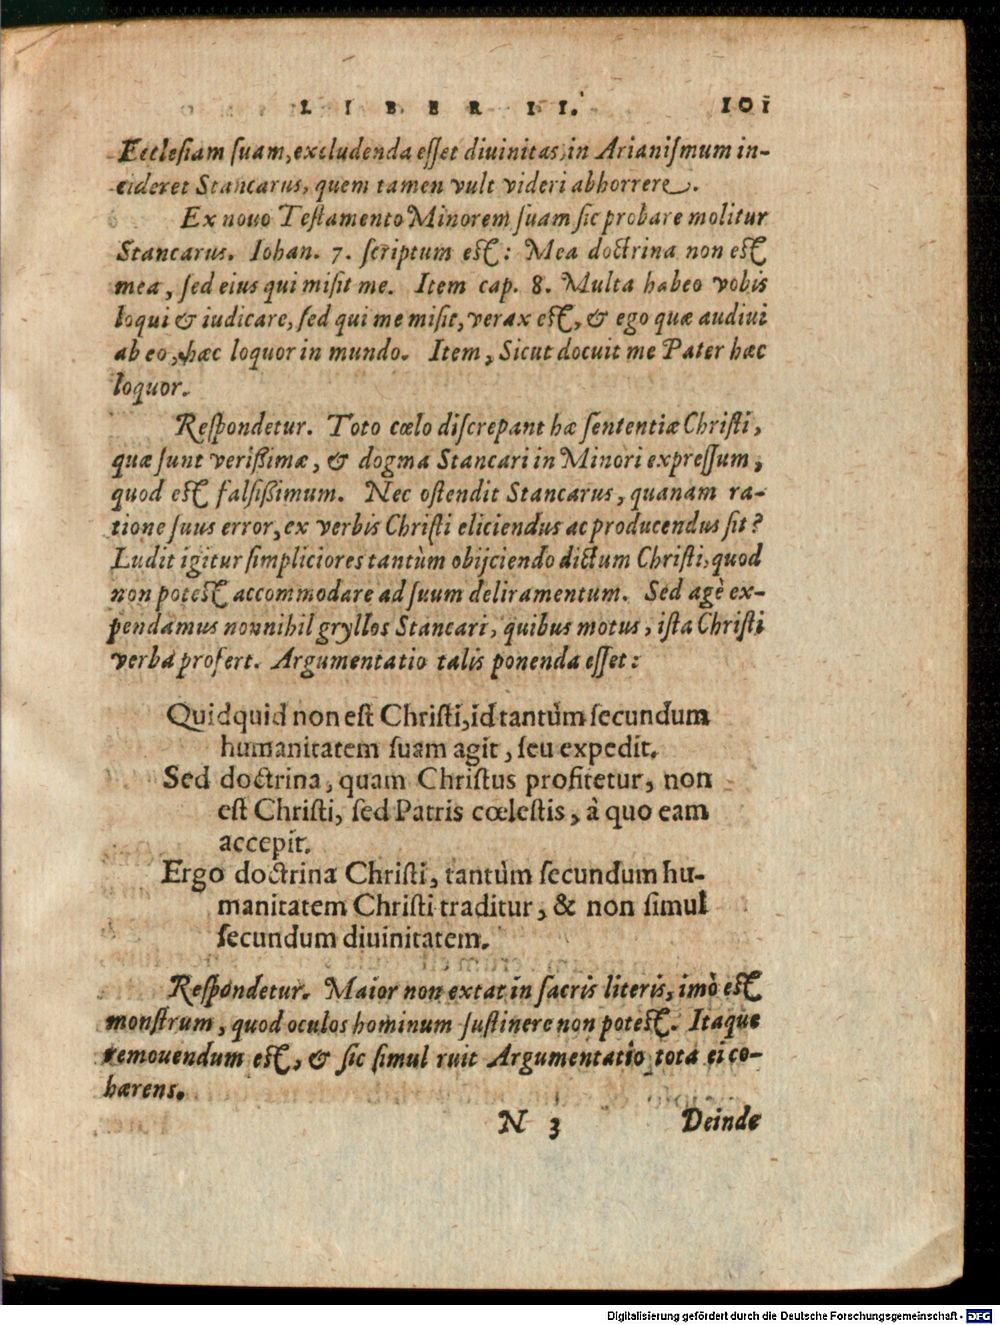 LIBER II. 101
Ecclesiam ſuam, excludenda eſſet diuinitas, in Arianiſmum in-
cideret Stancarus, quem tamen vult videri abhorrere.
Ex nouo Teſtamento Minorem ſuam ſic probare molitur
Stancarus. Iohan. 7. ſcriptum eſt: Mea doctrina non eſt
mea, ſed eius qui miſit me. Item cap. 8. Multa habeo vobis
loqui & iudicare, ſed qui me miſit, verax eſt, & ego quæ audiui
ab eo, hæc loquor in mundo. Item, Sicut docuit me Pater hæc
loquor.
Reſpondetur. Toto cœlo diſcrepant hæ ſententiæ Chriſti,
quæ ſunt verißimæ, & dogma Stancari in Minori expreſſum,
quod eſt falſißimum. Nec oſtendit Stancarus, quanam ra-
tione ſuus error, ex verbis Chriſti eliciendus ac producendus ſit?
Ludit igitur ſimpliciores tantùm obijciendo dictum Chriſti, quod
non poteſt accommodare ad ſuum deliramentum. Sed agè ex-
pendamus nonnihil gryllos Stancari, quibus motus, iſta Chriſti
verba profert. Argumentatio talis ponenda eſſet:
Quidquid non eſt Chriſti, id tantùm ſecundum
humanitatem ſuam agit, ſeu expedit.
Sed doctrina, quam Chriſtus profitetur, non
eſt Chriſti, ſed Patris cœleſtis, à quo eam
accepit.
Ergo doctrina Chriſti, tantùm ſecundum hu-
manitatem Chriſti traditur, & non ſimul
ſecundum diuinitatem.
Reſpondetur. Maior non extat in ſacris literis, imò eſt
monſtrum, quod oculos hominum ſuſtinere non poteſt. Itaque
remouendum eſt, & ſic ſimul ruit Argumentatio tota ei co-
hærens.
N 3 Deinde
Digitalisierung gefördert durch die Deutsche Forschungsgemeinschaft - DFG